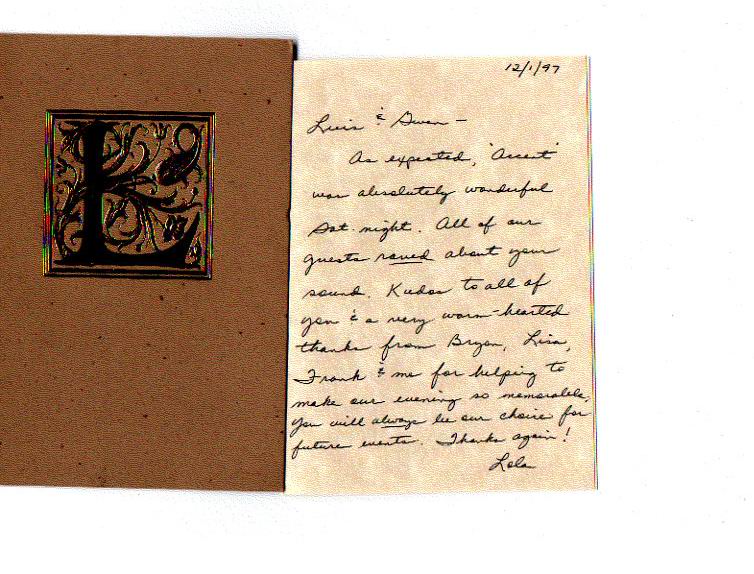 L
12/1/97
Luis & Gwen –
As expected, 'Accent'
was absolutely wonderful
Sat. night. All of our
guests raved about your
sound. Kudos to all of
you & a very warm-hearted
thanks from Bryan, Lisa,
Frank & me for helping to
make our evening so memorable;
you will always be our choice for
future events. Thanks again!
Lola